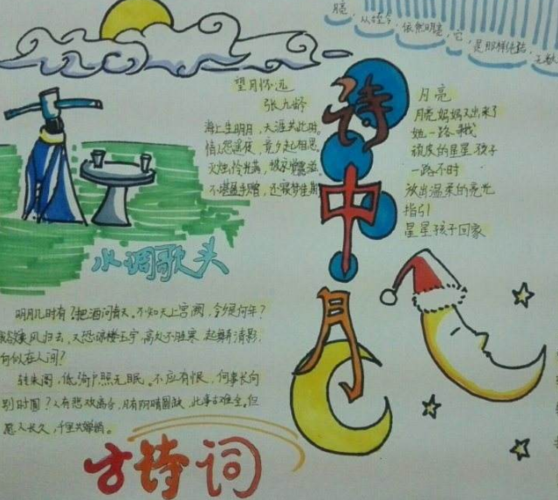 望月怀远
张九龄
海上生明月，天涯共此时。
情人怨遥夜，竟夕起相思。
灭烛怜光满，披衣觉露滋。
不堪盈手赠，还寝梦佳期
诗中月
月亮
月亮妈妈又出来了
她一路
顽皮的星星孩子
一路不时
放出温柔的亮光
指引
星星孩子回家
水调歌头
明月几时有？把酒问青天。不知天上宫阙，今夕是何年？
乘风归去，又恐琼楼玉宇，高处不胜寒 起舞清影，
何似在人间？
转朱阁，低绮户，照无眠。不应有恨，何事长向
别时圆？人有悲欢离合，月有阴晴圆缺，此事古难全。但
愿人长久，千里共婵娟。
古诗词